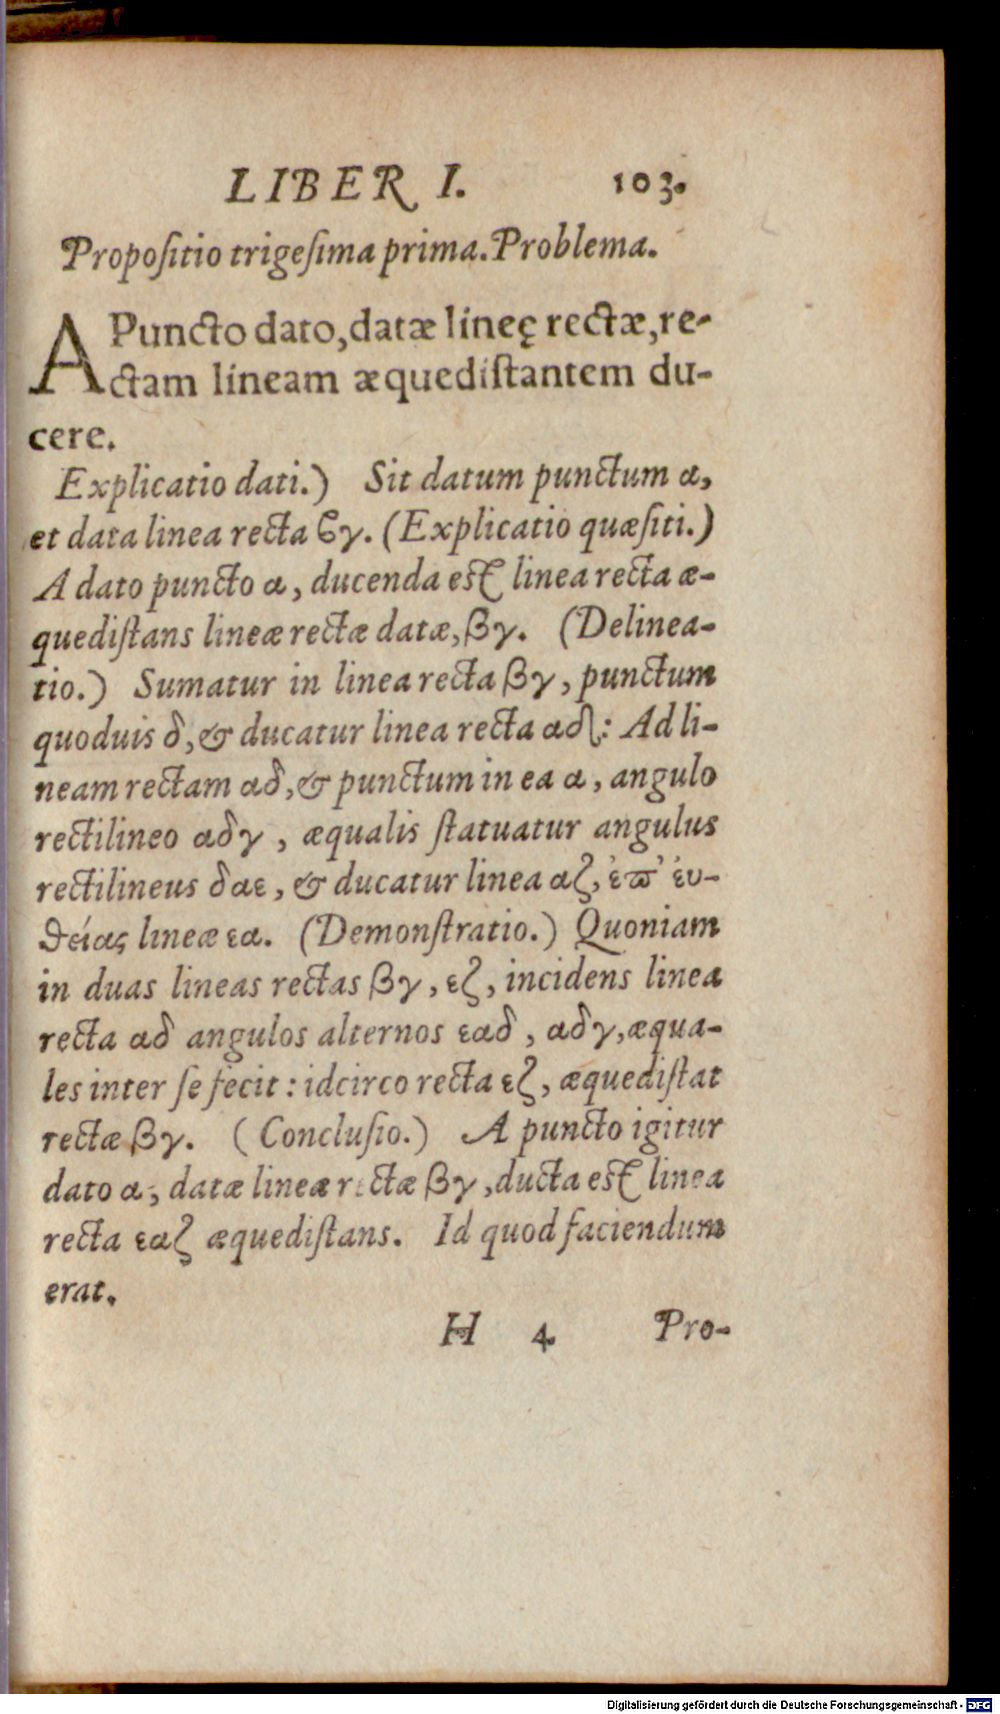 LIBER I. 103.
Propoſitio trigeſima prima. Problema.
A Puncto dato, datæ lineę rectæ, re-
ctam lineam æquediſtantem du-
cere.
Explicatio dati.) Sit datum punctum α,
et data linea recta ϐγ. (Explicatio quæſiti.)
A dato puncto α, ducenda eſt linea recta æ-
quediſtans lineæ rectæ datæ, βγ. (Delinea-
tio.) Sumatur in linea recta βγ, punctum
quoduis δ, & ducatur linea recta αδ: Ad li-
neam rectam αδ, & punctum in ea α, angulo
rectilineo αδγ, æqualis ſtatuatur angulus
rectilineus δαε, & ducatur linea αζ, ἐϖ' ἐυ-
ϑείας lineæ εα. (Demonſtratio.) Quoniam
in duas lineas rectas βγ, εζ, incidens linea
recta αδ angulos alternos εαδ, αδγ, æqua-
les inter ſe fecit: idcirco recta εζ, æquediſtat
rectæ βγ. (Concluſio.) A puncto igitur
dato α, datæ lineæ rectæ βγ, ducta eſt linea
recta εαζ æquediſtans. Id quod faciendum
erat.
H 4 Pro-
Digitalisierung gefördert durch die Deutsche Forschungsgemeinschaft - DFG